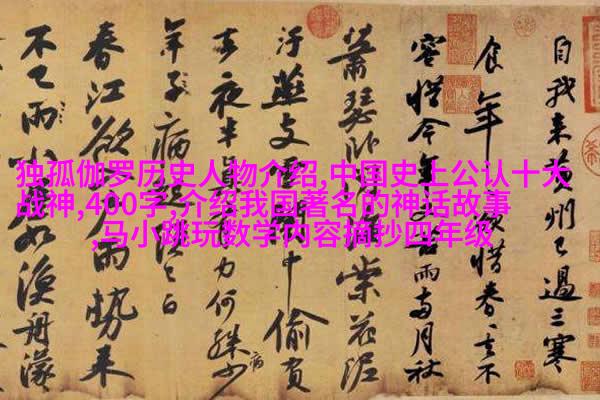 独孤伽罗历史人物介绍,中国史上公认十大
战神,400字,介绍我国著名的神话故事
,马小跳玩数学内容摘抄四年级
自我来黄州已過三寒
食年〻欲惜春〻去不
容惜今年又苦雨兩月秋
蕭瑟卧聞海棠花泥
汙燕支雪闇中偷負
去夜半真有力何殊少
病
年子病起須已白
春江欲入戶雨勢来
不已雨小屋如漁舟濛